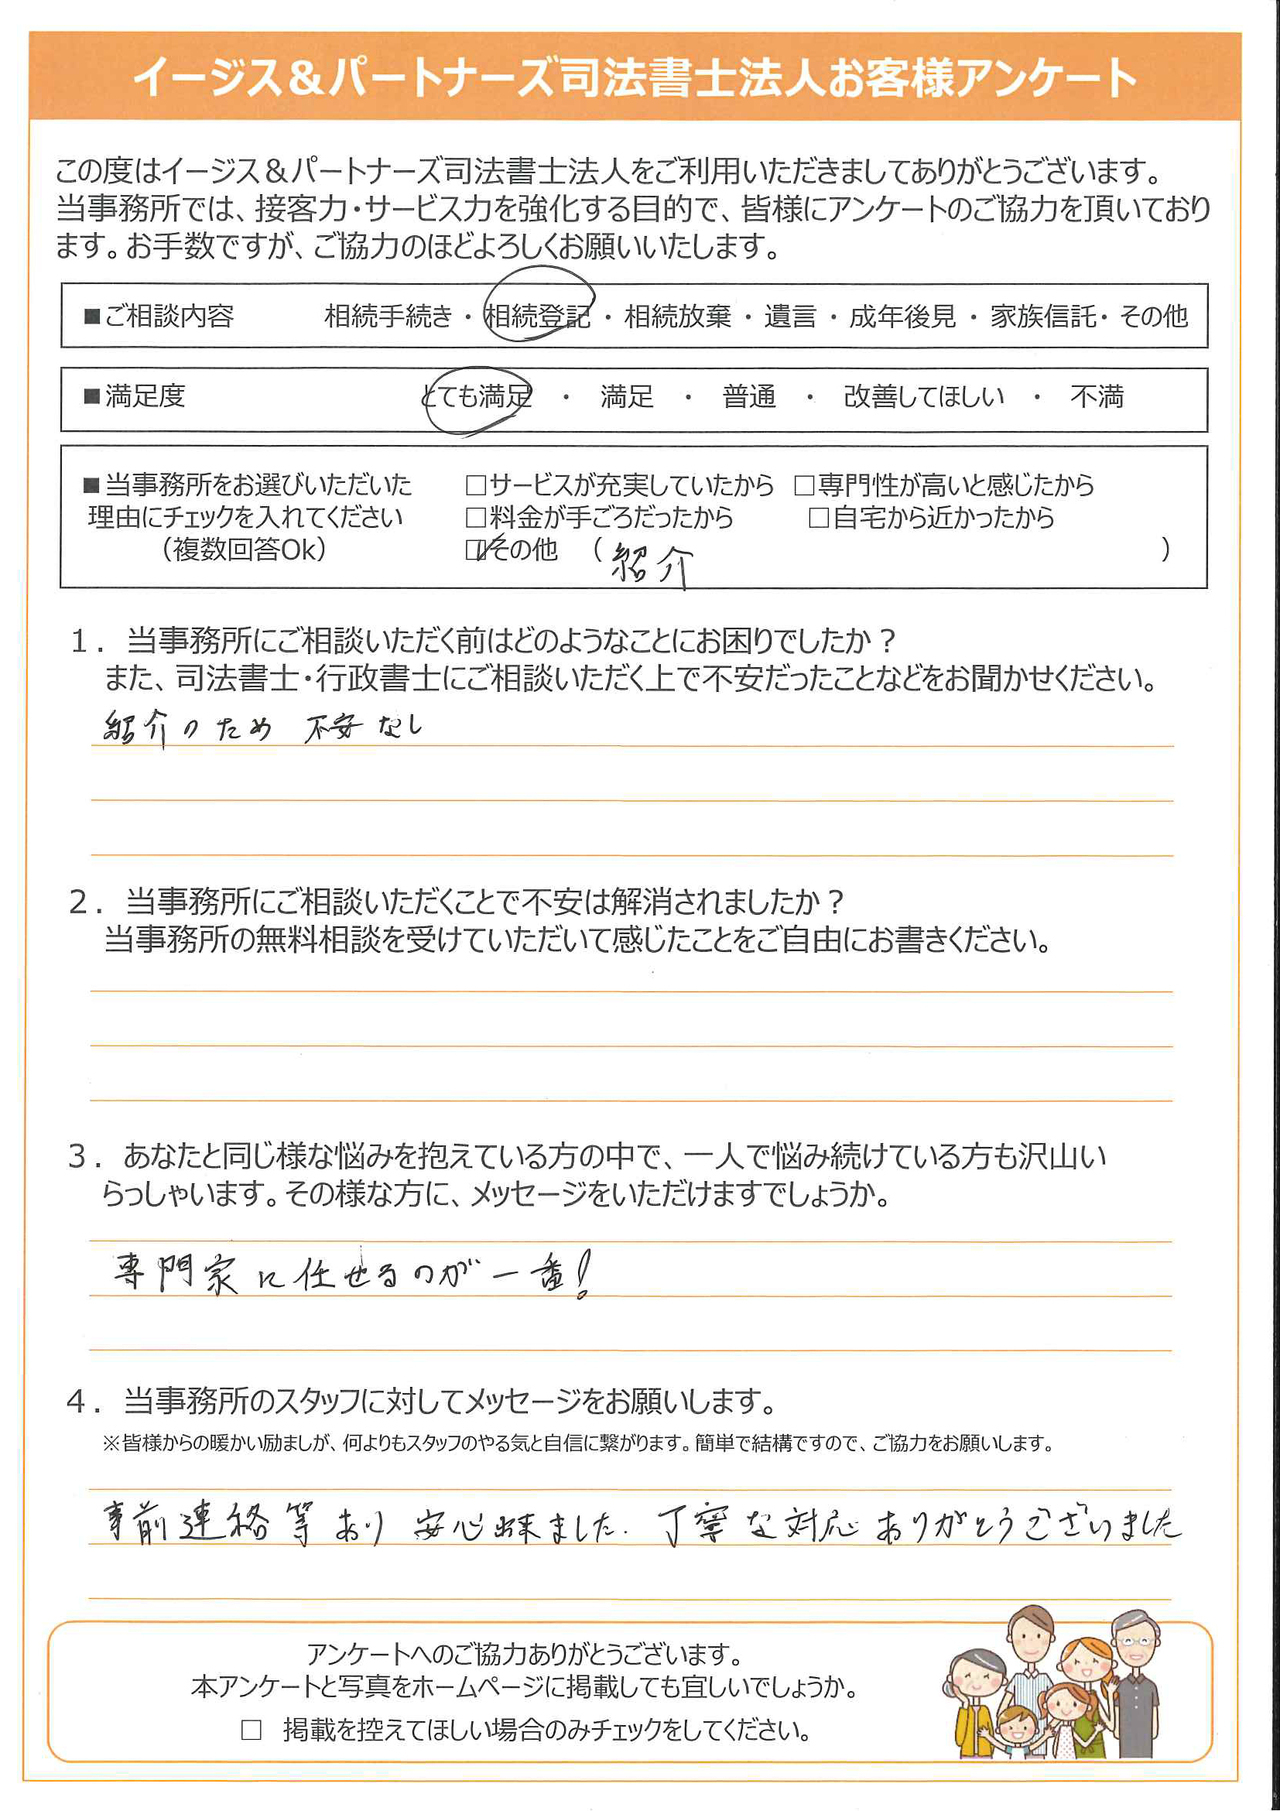 イージス＆パートナーズ司法書士法人お客様アンケート
この度はイージス＆パートナーズ司法書士法人をご利用いただきましてありがとうございます。
当事務所では、接客力・サービス力を強化する目的で、皆様にアンケートのご協力を頂いており
ます。お手数ですが、ご協力のほどよろしくお願いいたします。
■ご相談内容 相続手続き・相続登記・相続放棄・遺言・成年後見・家族信託・その他
■満足度 とても満足・満足・普通・改善してほしい・不満
■当事務所をお選びいただいた □サービスが充実していたから □専門性が高いと感じたから
理由にチェックを入れてください □料金が手ごろだったから □自宅から近かったから
（複数回答Ok） ☑その他 （紹介）
１．当事務所にご相談いただく前はどのようなことにお困りでしたか？
また、司法書士・行政書士にご相談いただく上で不安だったことなどをお聞かせください。
紹介のため 不安なし
２．当事務所にご相談いただくことで不安は解消されましたか？
当事務所の無料相談を受けていただいて感じたことをご自由にお書きください。
３．あなたと同じ様な悩みを抱えている方の中で、一人で悩み続けている方も沢山い
らっしゃいます。その様な方に、メッセージをいただけますでしょうか。
専門家に任せるのが一番！
４．当事務所のスタッフに対してメッセージをお願いします。
※皆様からの暖かい励ましが、何よりもスタッフのやる気と自信に繋がります。簡単で結構ですので、ご協力をお願いします。
事前連絡等あり 安心出来ました。丁寧な対応ありがとうございました
アンケートへのご協力ありがとうございます。
本アンケートと写真をホームページに掲載しても宜しいでしょうか。
□ 掲載を控えてほしい場合のみチェックをしてください。